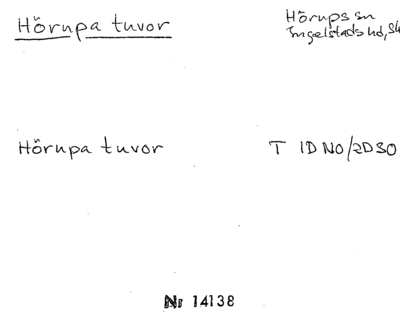 Hörupa tuvor
Hörups sn
Ingelstads hd, Sk
Hörupa tuvor
T 1D NO/2D SO
Nr 14138